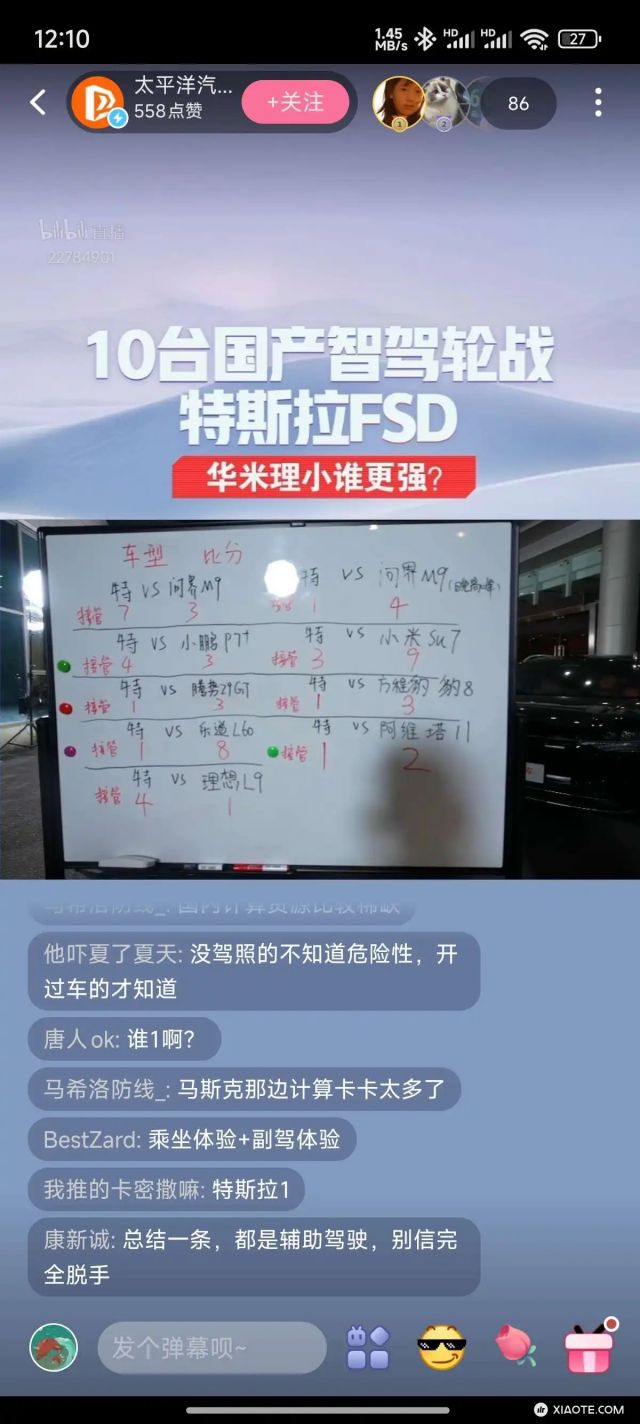 12:10
1.45 MB/s HD HD 27
太平洋汽...
558点赞
+关注
1
2
86
bilibili 直播
22784901
10台国产智驾轮战
特斯拉FSD
华米理小谁更强?
车型 比分
特 VS 问界M9
接管 7 3
特 VS 问界M9(晚高峰)
1 4
特 VS 小鹏P7+
接管 4 3
特 VS 小米Su7
接管 3 9
特 VS 腾势Z9GT
接管 1 3
特 VS 方程豹 豹8
接管 1 3
特 VS 乐道L60
接管 1 8
特 VS 阿维塔11
接管 1 2
特 VS 理想L9
接管 4 1
马希洛防线_: 国内计算资源比较稀缺
他吓夏了夏天: 没驾照的不知道危险性，开
过车的才知道
唐人ok: 谁1啊?
马希洛防线_: 马斯克那边计算卡卡太多了
BestZard: 乘坐体验+副驾体验
我推的卡密撒嘛: 特斯拉1
康新诚: 总结一条，都是辅助驾驶，别信完
全脱手
发个弹幕呗~
XIAOTE.COM